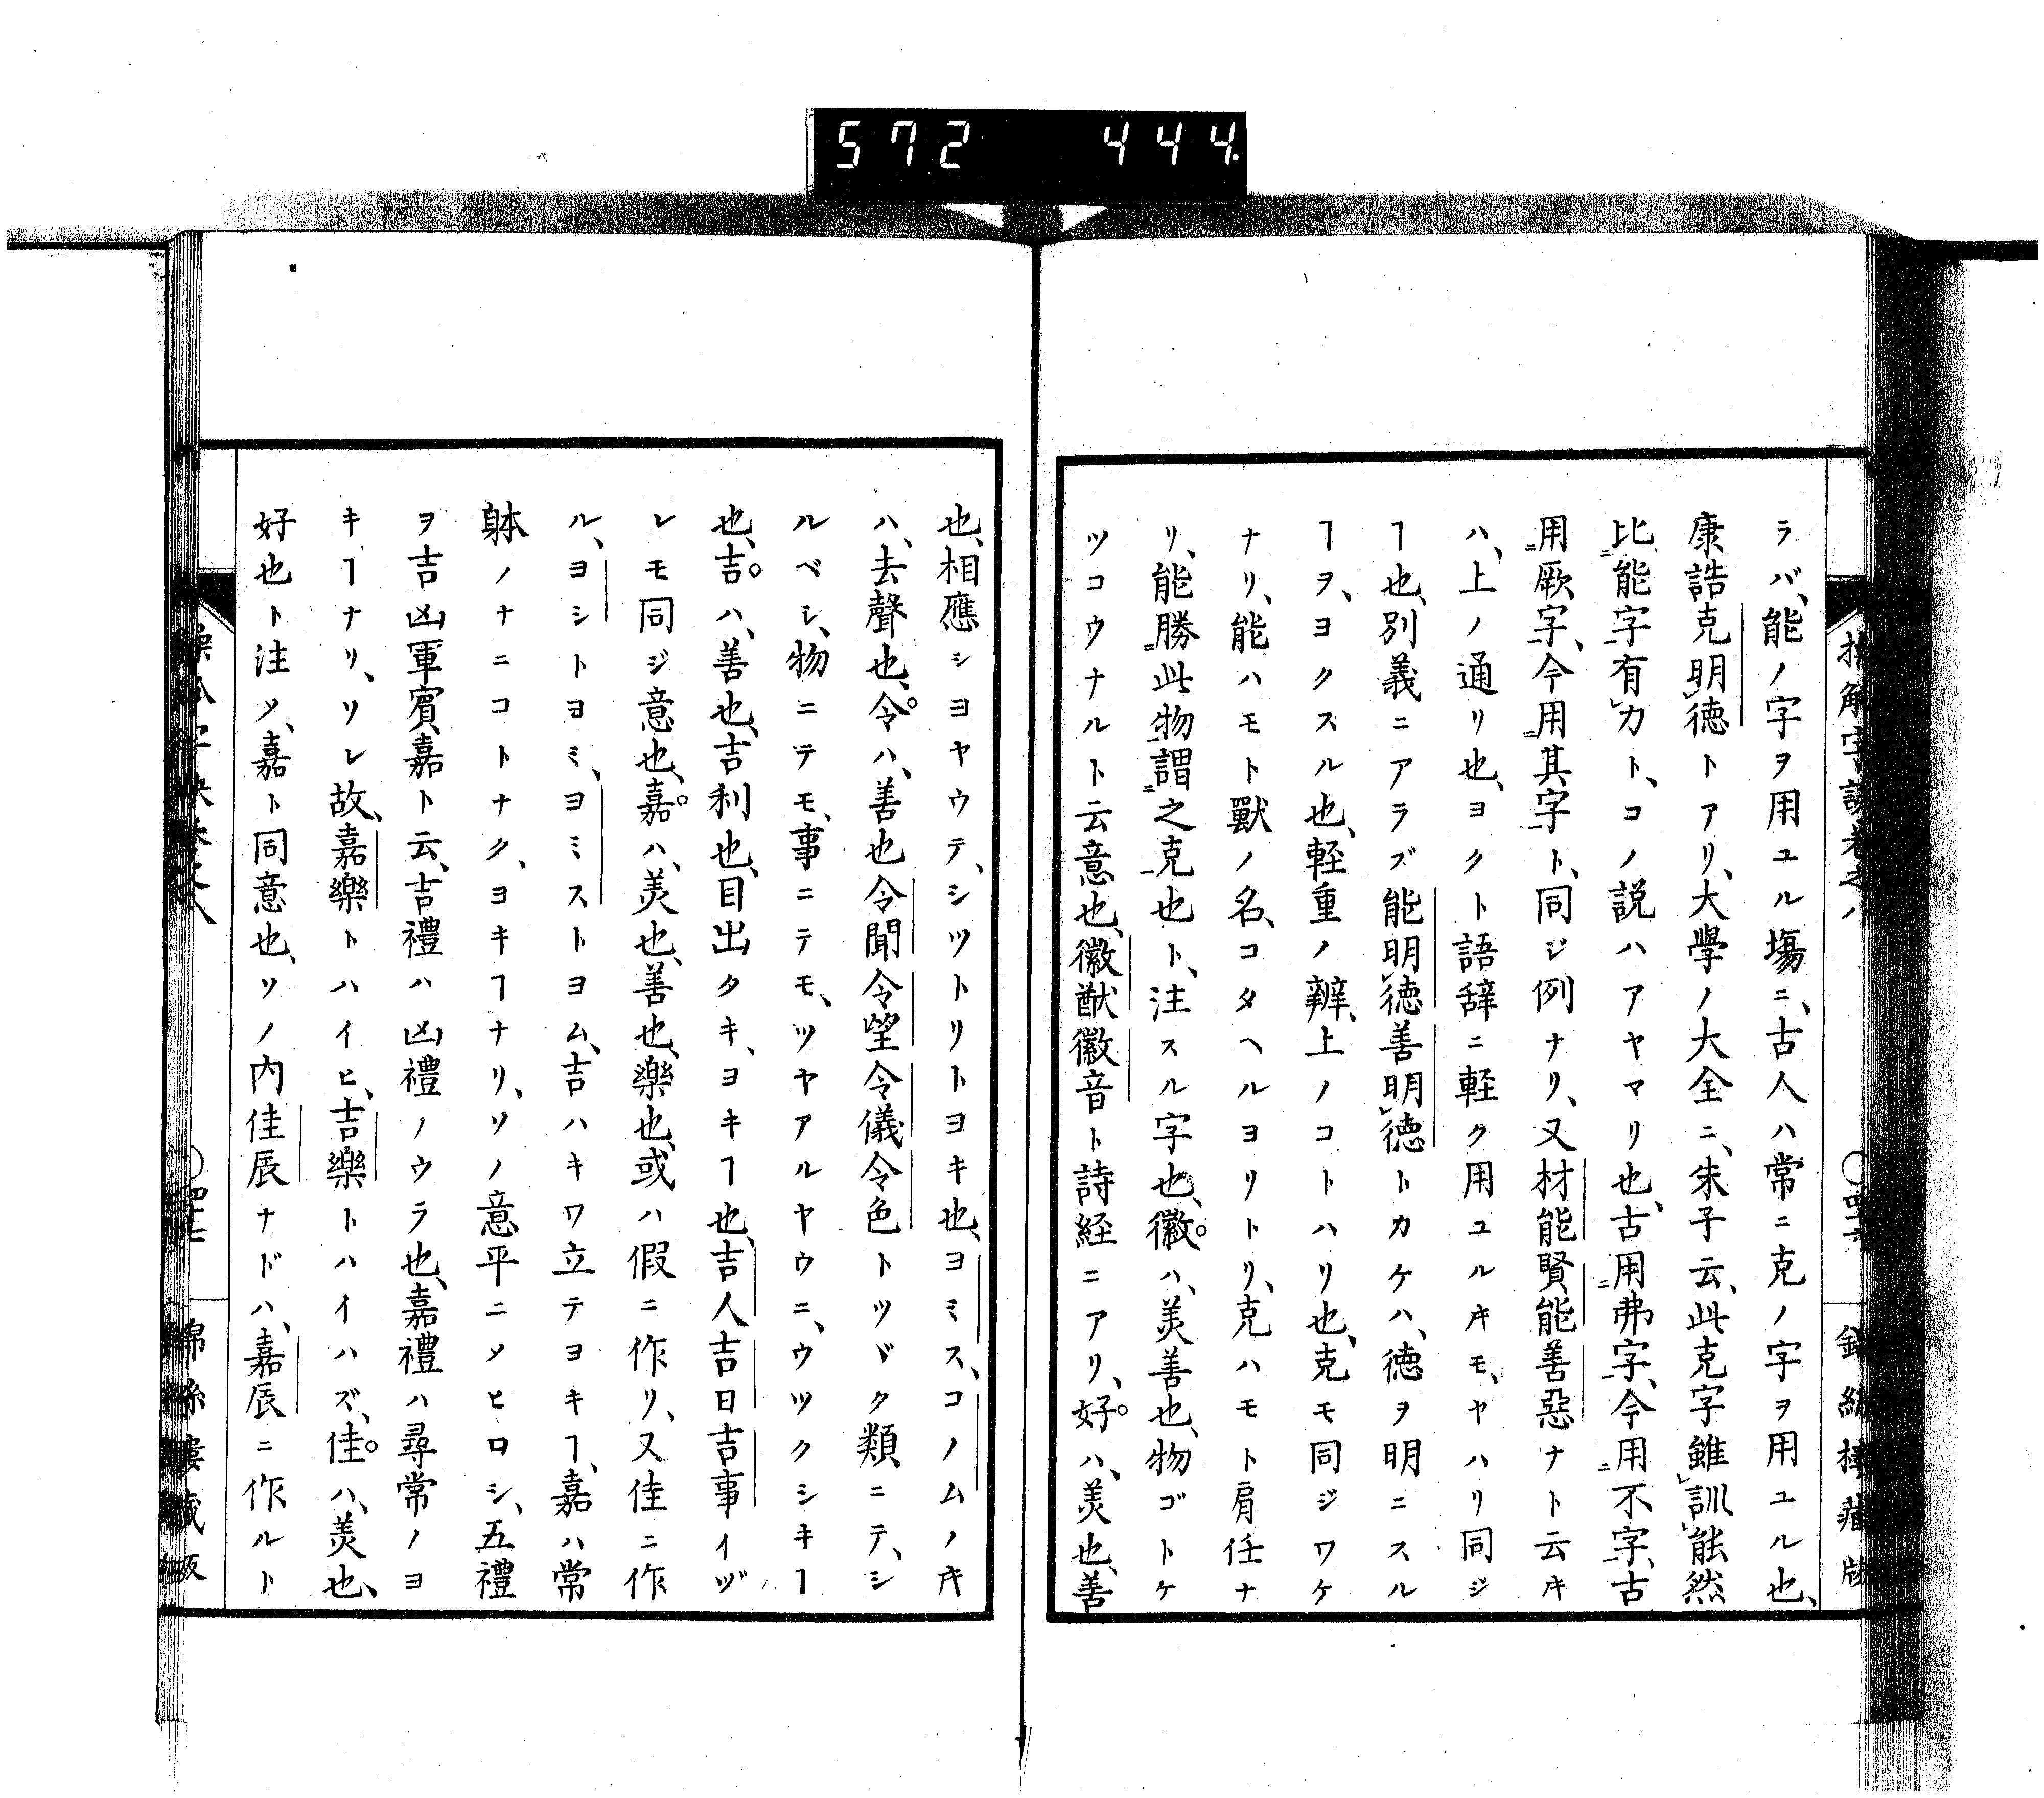 572 444.
ラバ、能ノ字ヲ用ユル塲ニ、古人ハ常ニ克ノ字ヲ用ユル也、
康誥克明徳トアリ、大學ノ大全ニ、朱子云、此克字雖訓能然
比能字有力ト、コノ説ハアヤマリ也、古用弗字、今用不字、古
用厥字、今用其字ト、同ジ例ナリ、又材能賢能善惡ナト云キ
ハ、上ノ通リ也、ヨクト語辞ニ軽ク用ユルキモ、ヤハリ同ジ
ヿ也、別義ニアラズ能明徳善明徳トカケハ、徳ヲ明ニスル
ヿヲ、ヨクスル也、軽重ノ辨、上ノコトハリ也、克モ同ジワケ
ナリ、能ハモト獸ノ名、コタヘルヨリトリ、克ハモト肩任ナ
リ、能勝此物謂之克也ト、注スル字也、徽。ハ、美善也、物ゴトケ
ツコウナルト云意也、徽猷徽音ト詩経ニアリ、好。ハ、美也、善
也、相應シヨヤウテ、シツトリトヨキ也、ヨミス、コノムノキ
ハ、去聲也、令。ハ、善也令聞令望令儀令色トツヾク類ニテ、シ
ルベシ、物ニテモ、事ニテモ、ツヤアルヤウニ、ウツクシキヿ
也、吉。ハ、善也、吉利也、目出タキ、ヨキヿ也、吉人吉日吉事イヅ
レモ同ジ意也、嘉。ハ、美也、善也、樂也、或ハ假ニ作リ、又佳ニ作
ル、ヨシトヨミ、ヨミストヨム、吉ハキワ立テヨキヿ、嘉ハ常
躰ノナニコトナク、ヨキヿナリ、ソノ意平ニメヒロシ、五禮
ヲ吉凶軍賓嘉ト云、吉禮ハ凶禮ノウラ也、嘉禮ハ尋常ノヨ
キヿナリ、ソレ故、嘉樂トハイヒ、吉樂トハイハズ、佳。ハ、美也、
好也ト注メ、嘉ト同意也、ソノ内佳辰ナドハ、嘉辰ニ作ルト